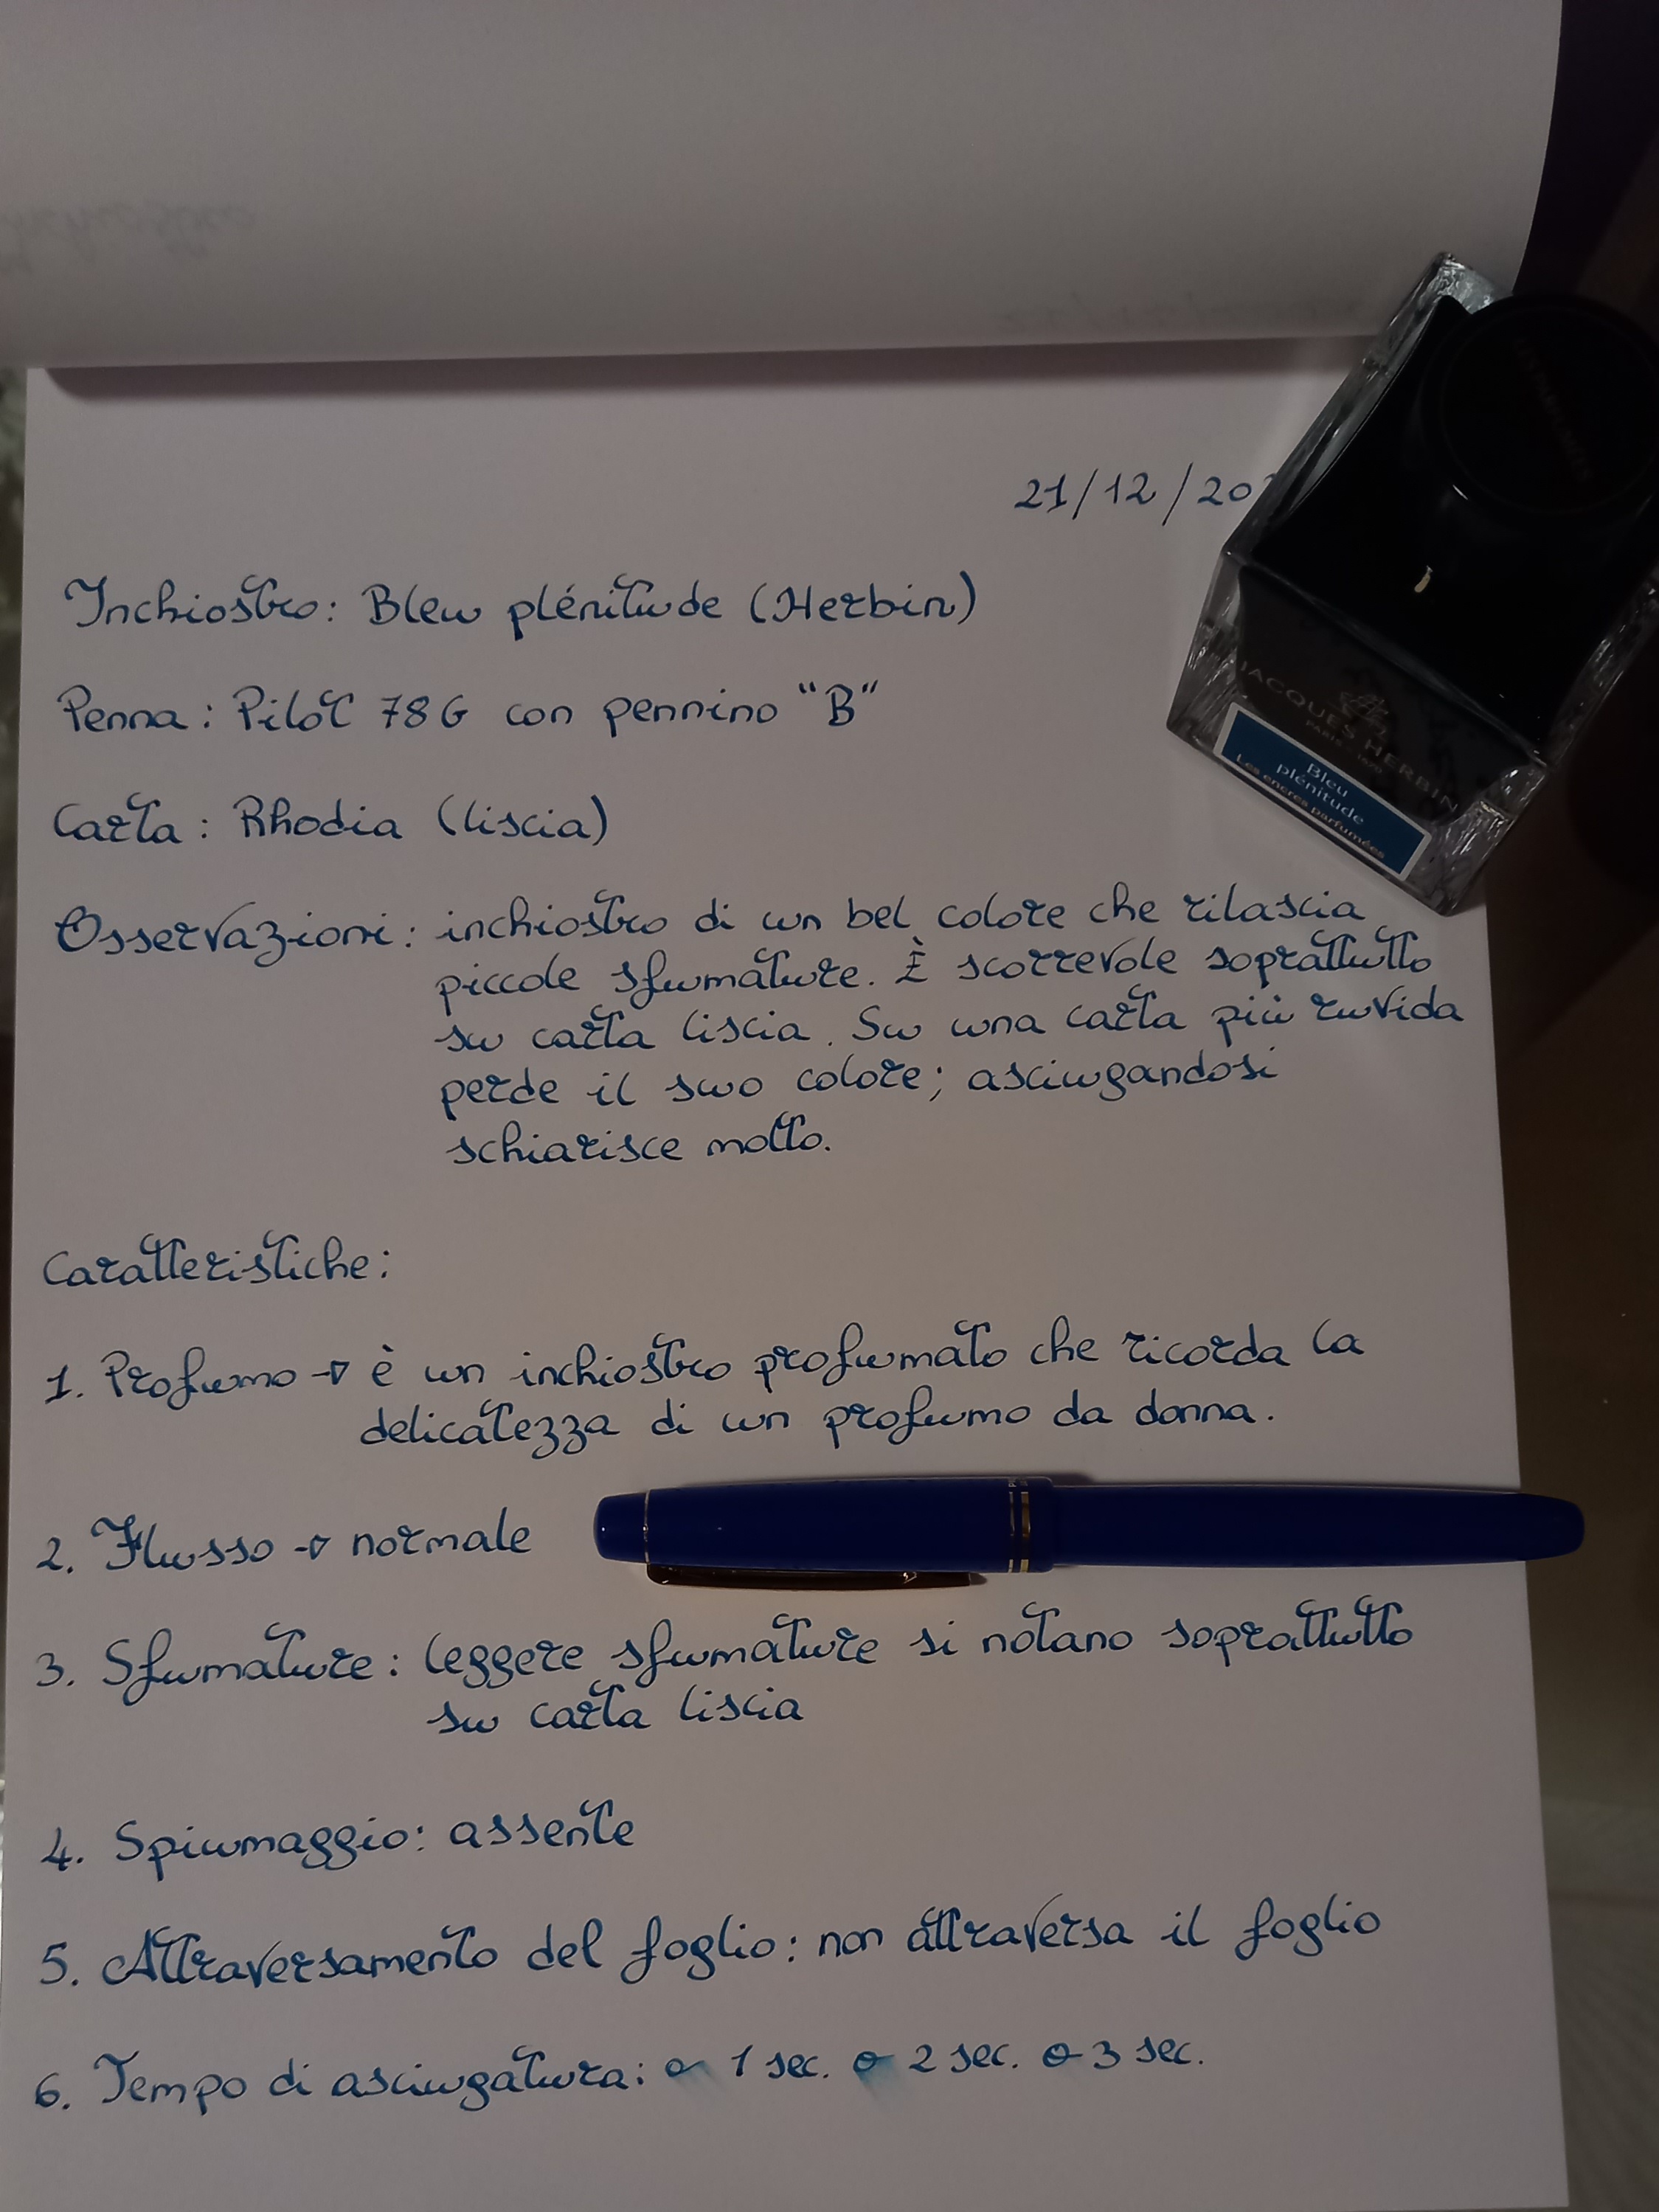 21/12/20
Inchiostro: Bleu plénitude (Herbin)
Penna: Pilot 78G con pennino "B"
Carta: Rhodia (liscia)
JACQUES HERBIN
PARIS - 1670
Bleu
plénitude
Les encres parfumées
Osservazioni: inchiostro di un bel colore che rilascia
piccole sfumature. È scorrevole soprattutto
su carta liscia. Su una carta più ruvida
perde il suo colore; asciugandosi
schiarisce molto.
Caratteristiche:
1. Profumo → è un inchiostro profumato che ricorda la
delicatezza di un profumo da donna.
2. Flusso → normale
3. Sfumature: leggere sfumature si notano soprattutto
su carta liscia
4. Spiumaggio: assente
5. Attraversamento del foglio: non attraversa il foglio
6. Tempo di asciugatura: 1 sec. 2 sec. 3 sec.